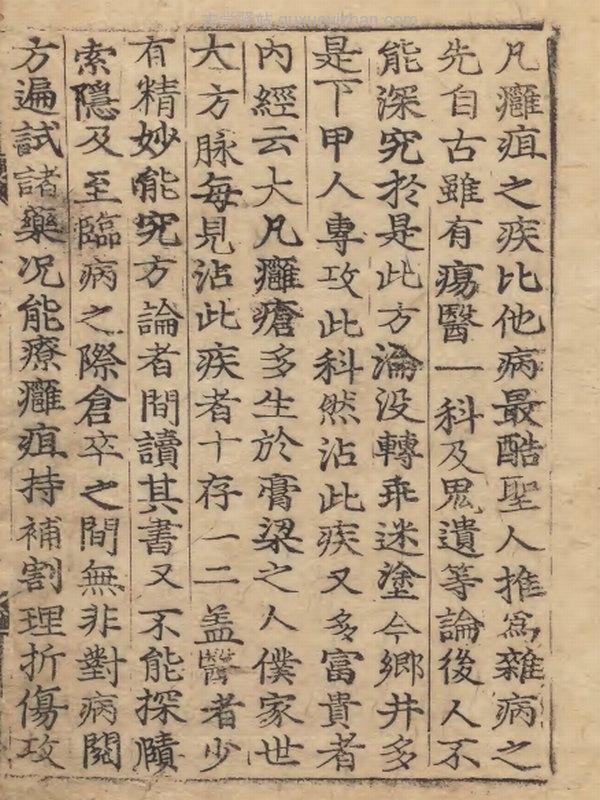 古学医站-guxueyizhan.com
凡癰疽之疾比他病最酷聖人推爲雜病之
先自古雖有瘍醫一科及鬼遺等論後人不
能深究於是此方淪没轉乖迷塗今鄉井多
是下甲人專攻此科然沾此疾又多富貴者
内經云大凡癰瘡多生於膏梁之人僕家世
大方脉每見沾此疾者十存一二盖醫者少
有精妙能究方論者間讀其書又不能探賾
索隱及至臨病之際倉卒之間無非對病閱
方遍試諸藥况能療癰疽持補割理折傷攻